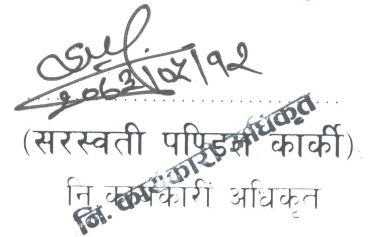 २०६३/०५/१२
(सरस्वती पण्डित कार्की)
नि. कार्यकारी अधिकृत
नि कार्यकारीं अधिकृत